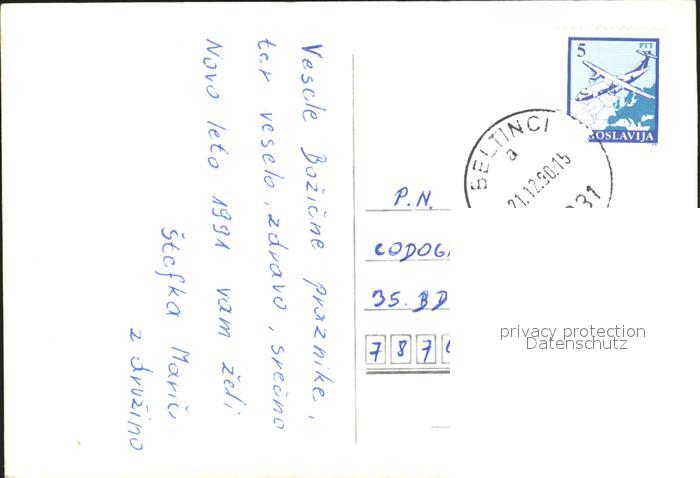 Vesele Božične praznike,
ter veselo, zdravo, srečno
Novo leto 1991 vam želi
Štefka Marič
z družino
5
PTT
JUGOSLAVIJA
BELTINCI
a
21.12.90.15
P.N.
CODOG
35. BD
7 8 7
privacy protection
Datenschutz